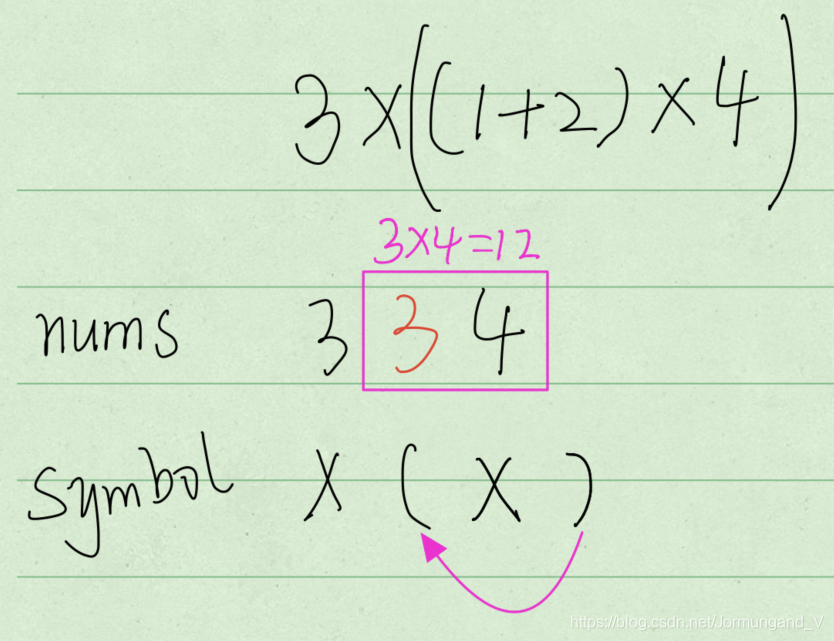 3×((1+2)×4)
3×4=12
nums 3 3 4
symbol × ( × )
https://blog.csdn.net/Jormungand_V